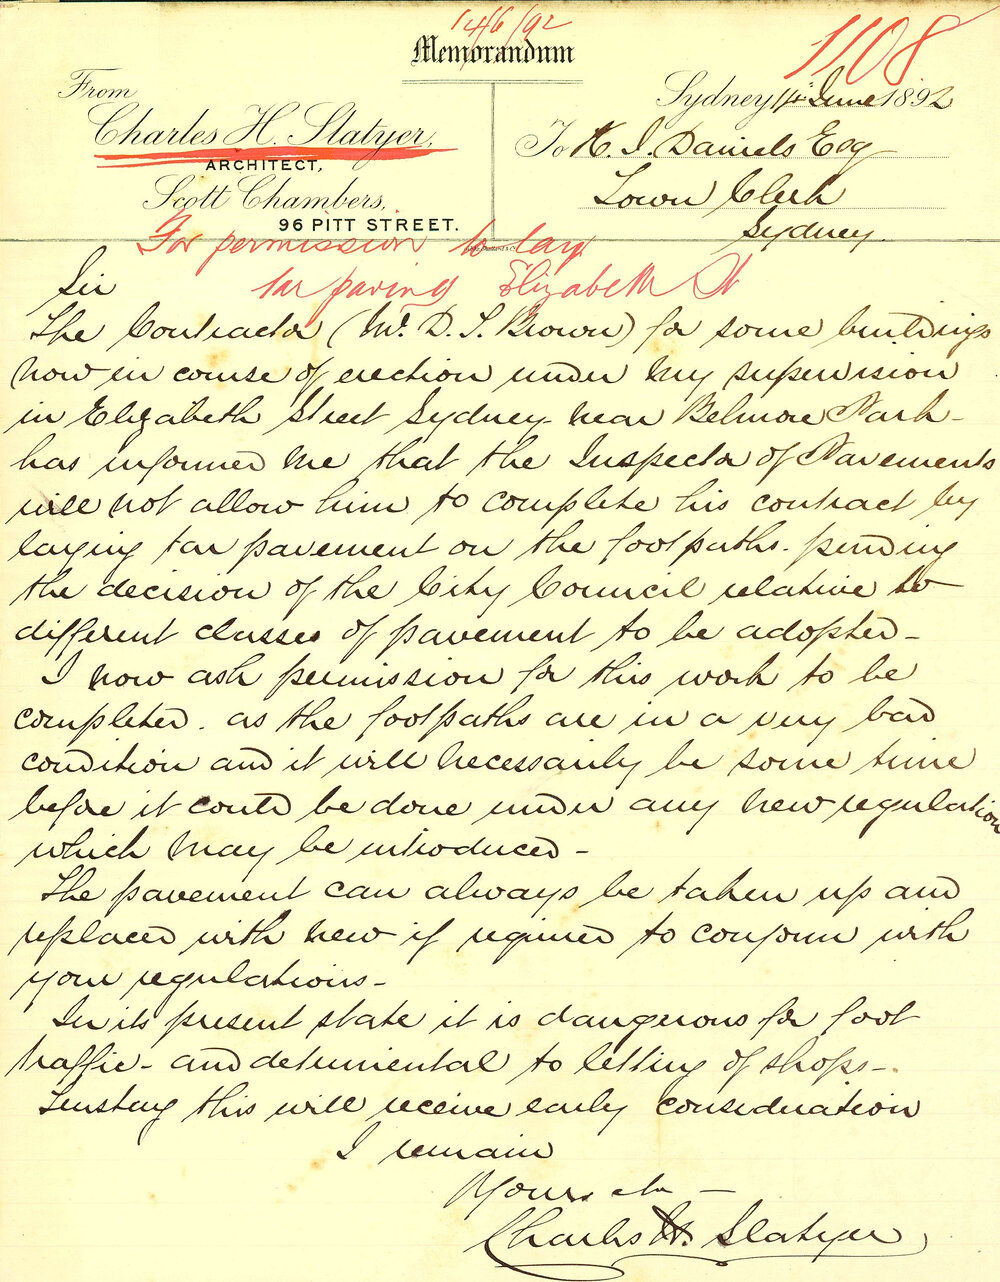 14/6/92
1108
Memorandum
From
Charles H. Slatyer,
ARCHITECT,
Scott Chambers,
96 PITT STREET.
Sydney 14 June 1892
To H. J. Daniels Esq
Town Clerk
Sydney.
For permission to lay
tar paving Elizabeth St
Sir
The Contractor (Mr. D. S. Brown) for some buildings
now in course of erection under my supervision
in Elizabeth Street Sydney - near Belmore Park -
has informed me that the Inspector of Pavements
will not allow him to complete his contract by
laying tar pavement on the footpaths. pending
the decision of the City Council relative to
different classes of pavement to be adopted -
I now ask permission for this work to be
completed. as the footpaths are in a very bad
condition and it will necessarily be some time
before it could be done under any new regulation
which may be introduced -
The pavement can always be taken up and
replaced with new if required to conform with
your regulations -
In its present state it is dangerous for foot
traffic - and detrimental to letting of shops -
Trusting this will receive early consideration
I remain
Yours &c -
Charles H. Slatyer